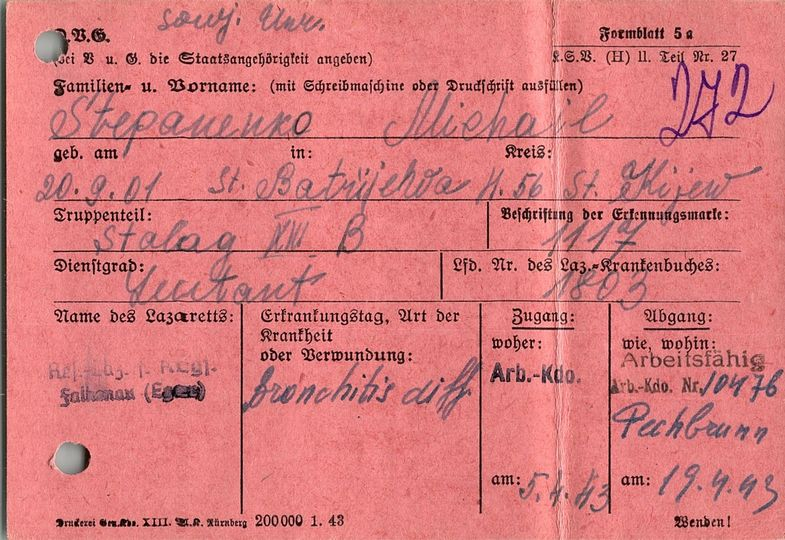 D.V.G. sowj. Ukr.
Formblatt 5a
(bei V u. G. die Staatsangehörigkeit angeben)
K.S.V. (H) II. Teil Nr. 27
Familien- u. Vorname: (mit Schreibmaschine oder Druckschrift ausfüllen)
272
Stepanenko Michail
geb. am in: Kreis:
20.9.01 St. H. 56 St. Kijew
Truppenteil: Beschriftung der Erkennungsmarke:
Stalag XIII B 1117
Dienstgrad: Lfd. Nr. des Laz.-Krankenbuches:
Leutant 1803
Name des Lazaretts:
Res.-Laz. f. Kgf.
Falkenau (Eger)
Erkrankungstag, Art der
Krankheit
oder Verwundung:
Bronchitis diff.
Zugang:
woher:
Arb.-Kdo.
am: 5.4.43
Abgang:
wie, wohin:
Arbeitsfähig
Arb.-Kdo. Nr. 10476
Pechbrunn
am: 19.4.43
Druckerei Gen.Kdo. XIII. A.K. Nürnberg 200000 1. 43
Wenden!